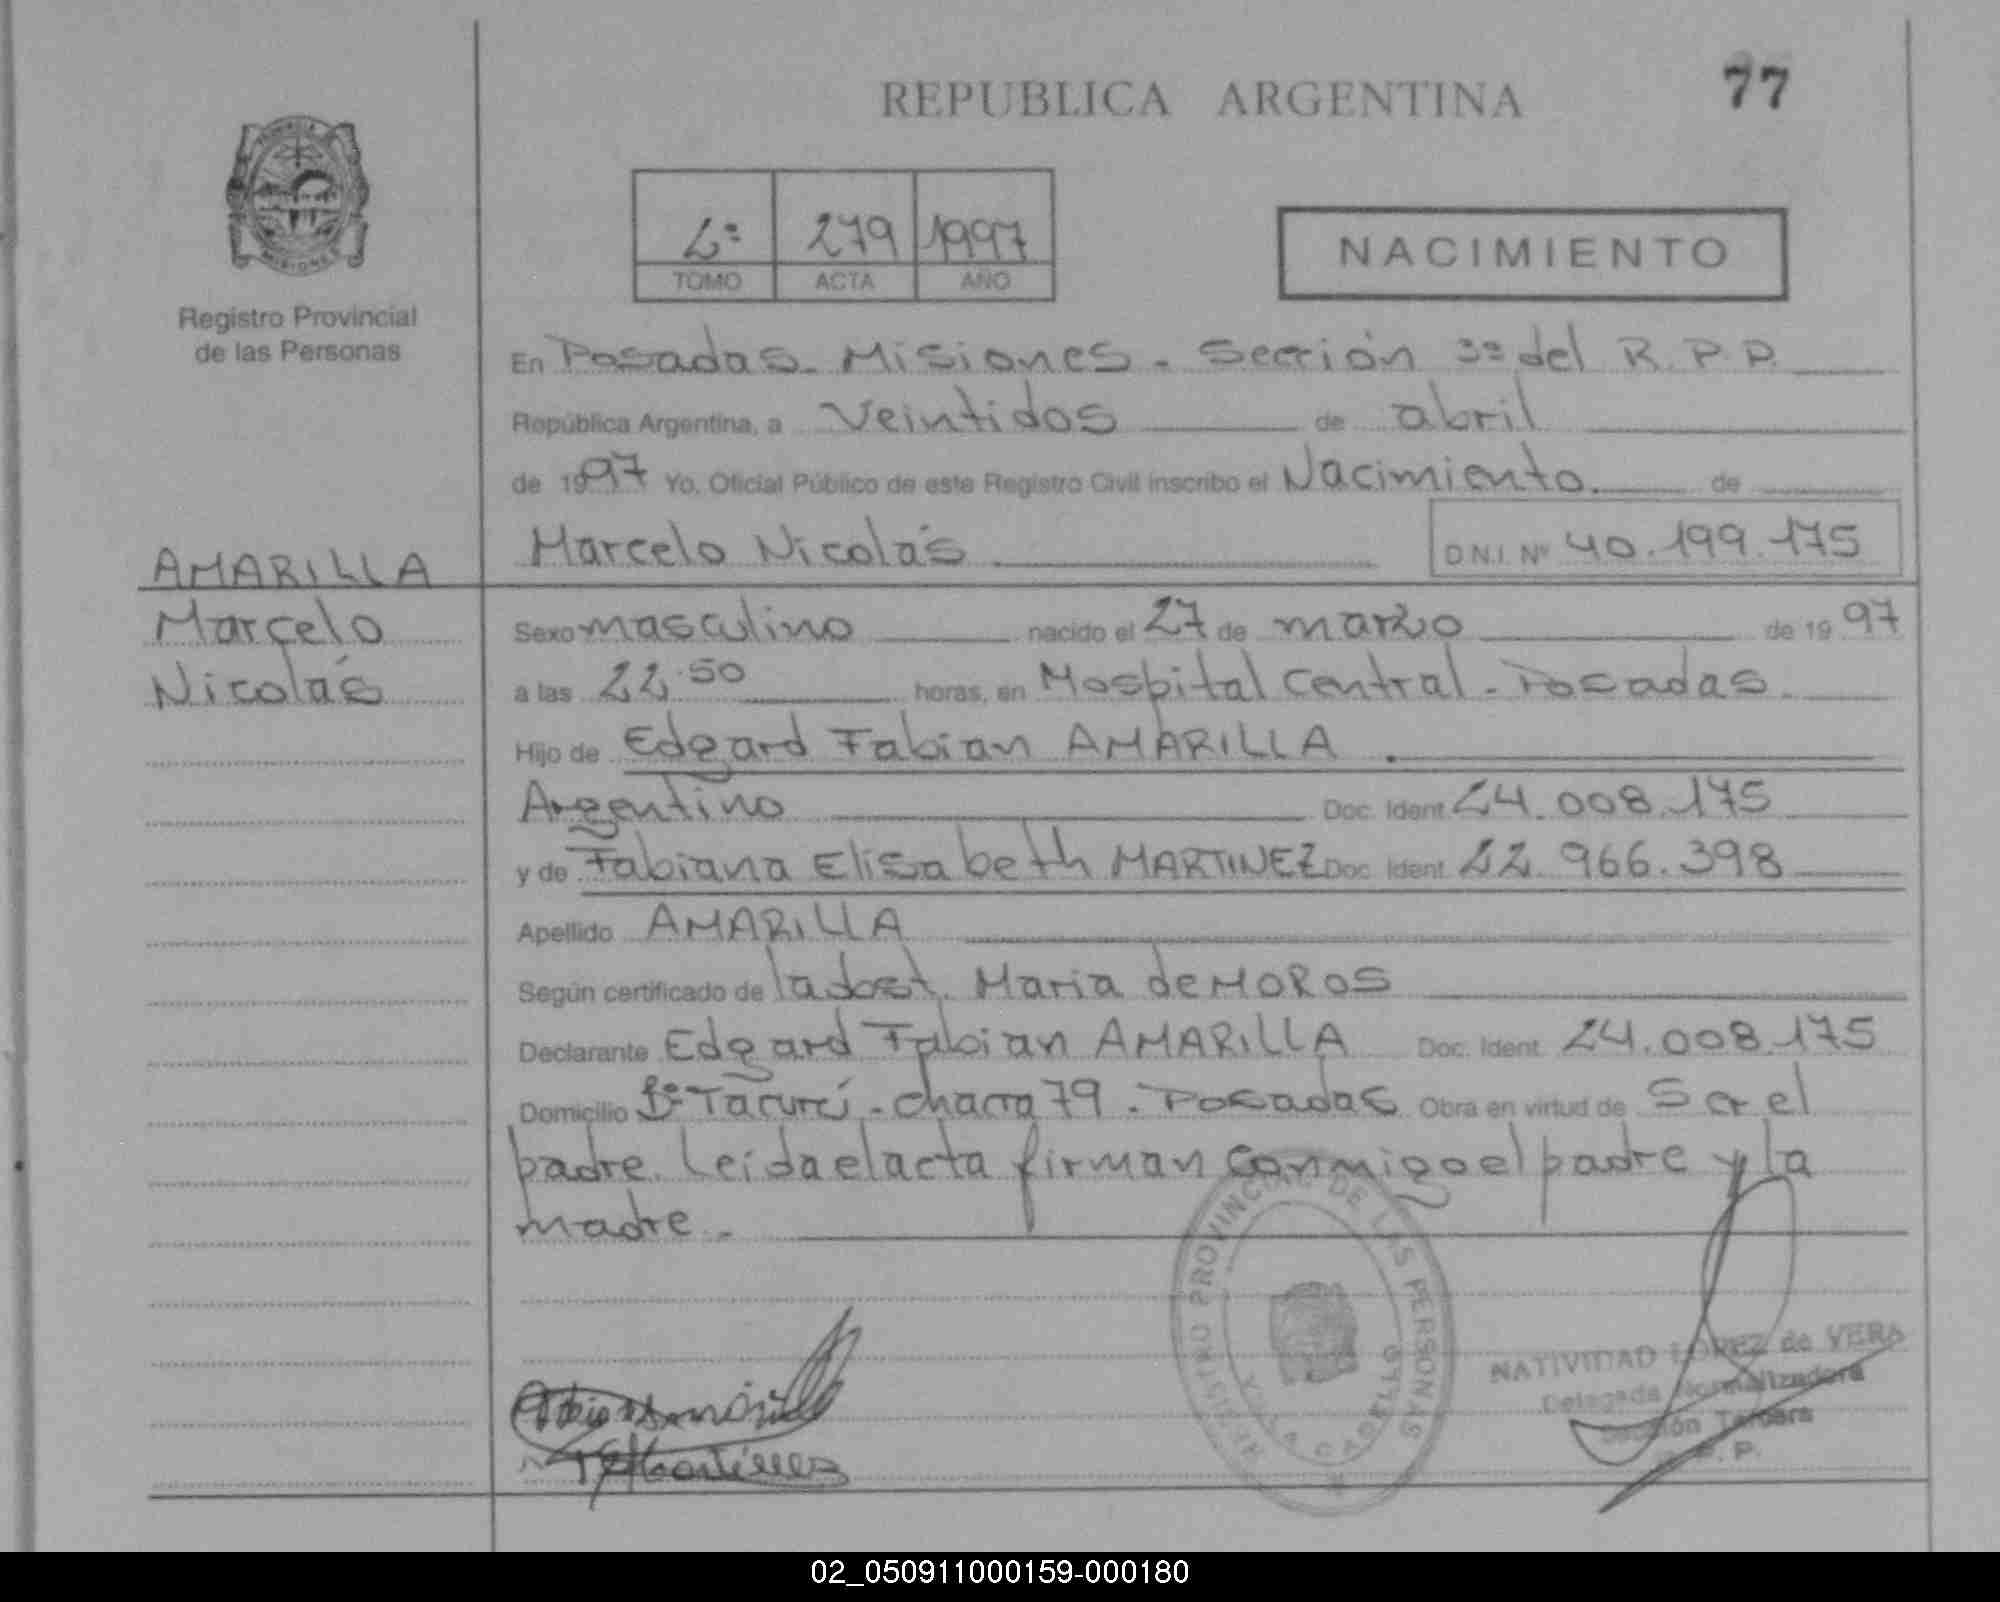 REPUBLICA ARGENTINA
77
Registro Provincial
de las Personas
2º 279 1997
TOMO ACTA AÑO
NACIMIENTO
En Posadas - Misiones - Sección 3ª del R.P.P.
República Argentina, a Veintidos de abril
de 1997 Yo, Oficial Público de este Registro Civil inscribo el Nacimiento. de
Marcelo Nicolás D.N.I. Nº 40.199.175
AMARILLA
Marcelo
Nicolás
Sexo masculino nacido el 27 de marzo de 1997
a las 22.50 horas, en Hospital Central - Posadas.
Hijo de Edgard Fabian AMARILLA.
Argentino Doc. Ident. 24.008.175
y de Fabiana Elisabeth MARTINEZ Doc. Ident. 22.966.398
Apellido AMARILLA
Según certificado de la obst. Maria de MOROS
Declarante Edgard Fabian AMARILLA Doc. Ident. 24.008.175
Domicilio Bº Tacurú - chacra 79. Posadas Obra en virtud de Ser el
padre. Leida el acta firman conmigo el padre y la
madre.-
REGISTRO PROVINCIAL DE LAS PERSONAS
NATIVIDAD LOPEZ de VERA
Delegada Normalizadora
Sección Tercera
P.
02_050911000159-000180